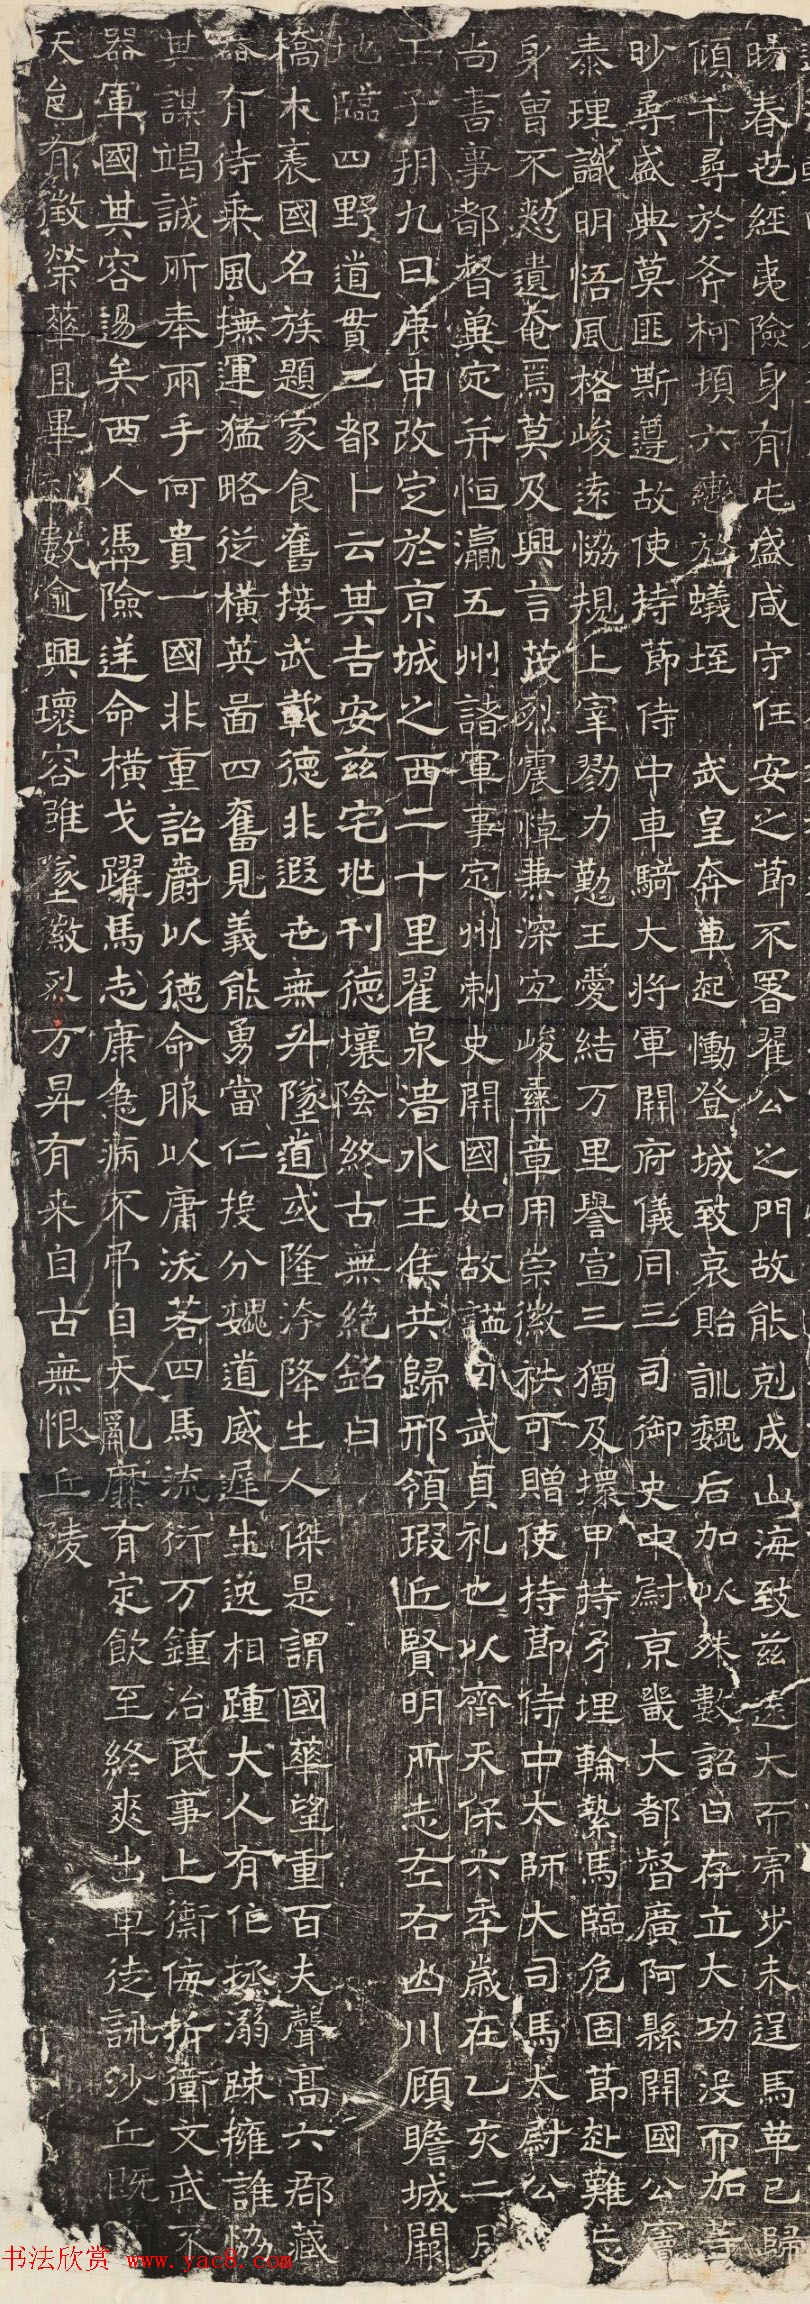 暘春也經夷險身有屯盛咸守任安之節不署翟公之門故能剋成山海致茲遠大而常步未逞馬革已歸
傾千尋於斧柯塤六轡於蟻垤 武皇奔車起慟登城致哀貽訓魏后加以殊數詔曰存立大功沒而加等
眇尋盛典莫匪斯遵故使持節侍中車騎大將軍開府儀同三司御史中尉京畿大都督廣阿縣開國公竇
泰理識明悟風格峻遠協規上宰勠力懃王愛結万里譽宣三獨及擐甲持矛埋輪縶馬臨危固節赴難忘
身曾不憖遺奄焉莫及興言茂烈震悼兼深宜峻彝章用崇徽袟可贈使持節侍中太師大司馬太尉公
尚書事都督冀定并恒瀛五州諸軍事定州刺史開國如故謚曰武貞礼也以齊天保六年歲在乙亥二月
壬子朔九日庚申改定於京城之西二十里翟泉湝水王隽共歸邢領瑕丘賢明所志左右山川顧瞻城闕
地臨四野道貫二都卜云其吉安茲宅地刊德壤陰終古無絕銘曰
橋木表國名族題家食舊接武載德非遐世無升墜道或隆洿降生人傑是謂國華望重百夫聲高六郡藏
器有待乘風撫運猛略從橫英啚四奮見義能勇當仁投分魏道威遲生逸相踵大人有作拯溺踈擁誰協
其謀竭誠所奉兩手何貴一國非重詔爵以德命服以庸沃若四馬流衍万鍾治民事上禦侮折衝文武不
器軍國其容逷矣西人憑險逆命橫戈躍馬志康急病不弔自天亂靡有定飲至終爽出車徒詠沙丘既
天邑有徵榮華且畢數逾興壞容雖墜徽烈方昇有來自古無恨丘陵
书法欣赏 www.yac8.com